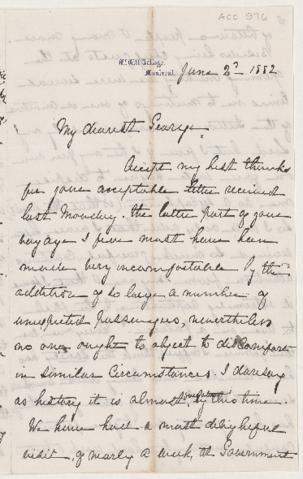 ACC 976
McGill College,
Montreal.
June 2d 1882
My dearest George,
Accept my best thanks
for your acceptable letter received
last Monday. the latter part of your
voyage I fear must have been
made very uncomfortable by the
addition of so large a number of
unexpected passengers, nevertheless
no one ought to object to discomfort
in similar circumstances. I daresay
as history it is almost forgotten by this time.
We have had a most delightful
visit, of nearly a week, the Government